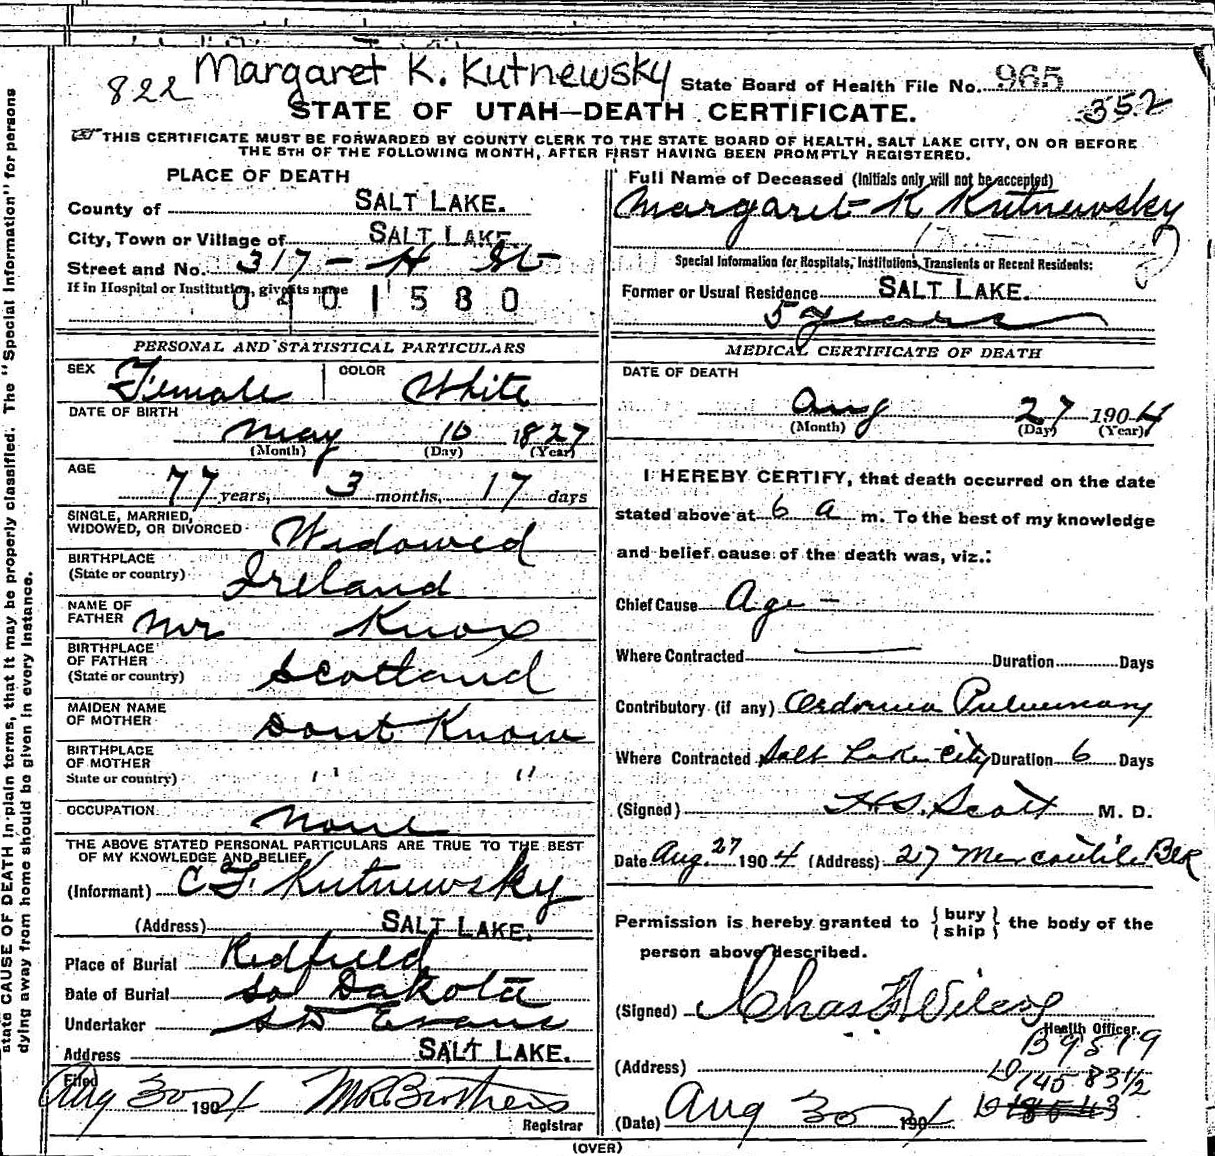 822 Margaret K. Kutnewsky State Board of Health File No. 965
STATE OF UTAH—DEATH CERTIFICATE. 352
THIS CERTIFICATE MUST BE FORWARDED BY COUNTY CLERK TO THE STATE BOARD OF HEALTH, SALT LAKE CITY, ON OR BEFORE
THE 5TH OF THE FOLLOWING MONTH, AFTER FIRST HAVING BEEN PROMPTLY REGISTERED.
PLACE OF DEATH
County of SALT LAKE.
City, Town or Village of SALT LAKE.
Street and No. 317 - H St
If in Hospital or Institution, give its name
0401580
PERSONAL AND STATISTICAL PARTICULARS
SEX Female COLOR White
DATE OF BIRTH
May 10 1827
(Month) (Day) (Year)
AGE
77 years, 3 months, 17 days
SINGLE, MARRIED,
WIDOWED, OR DIVORCED Widowed
BIRTHPLACE
(State or country) Ireland
NAME OF
FATHER Mr Knox
BIRTHPLACE
OF FATHER
(State or country) Scotland
MAIDEN NAME
OF MOTHER Dont Know
BIRTHPLACE
OF MOTHER
State or country) " "
OCCUPATION None
THE ABOVE STATED PERSONAL PARTICULARS ARE TRUE TO THE BEST
OF MY KNOWLEDGE AND BELIEF
(Informant) C F Kutnewsky
(Address) SALT LAKE.
Place of Burial Redfield
Date of Burial So Dakota
Undertaker S D Evans
Address SALT LAKE.
Filed Aug 30 1904 M R Brothers
Registrar
Full Name of Deceased (Initials only will not be accepted)
Margaret K Kutnewsky
Special Information for Hospitals, Institutions, Transients or Recent Residents:
Former or Usual Residence SALT LAKE.
5 years
MEDICAL CERTIFICATE OF DEATH
DATE OF DEATH
Aug 27 1904
(Month) (Day) (Year)
I HEREBY CERTIFY, that death occurred on the date
stated above at 6 a m. To the best of my knowledge
and belief cause of the death was, viz.:
Chief Cause Age -
Where Contracted Duration Days
Contributory (if any) Oedema Pulmonary
Where Contracted Salt Lake City Duration 6 Days
(Signed) H.S. Scott M. D.
Date Aug. 27 1904 (Address) 27 Mercantile Blk
Permission is hereby granted to {bury ship} the body of the
person above described.
(Signed) Chas F Wilcox
Health Officer.
B9519
(Address) D 145 83 1/2
(Date) Aug 30 1904
(OVER)
state CAUSE OF DEATH in plain terms, that it may be properly classified. The "Special Information" for persons
dying away from home should be given in every instance.